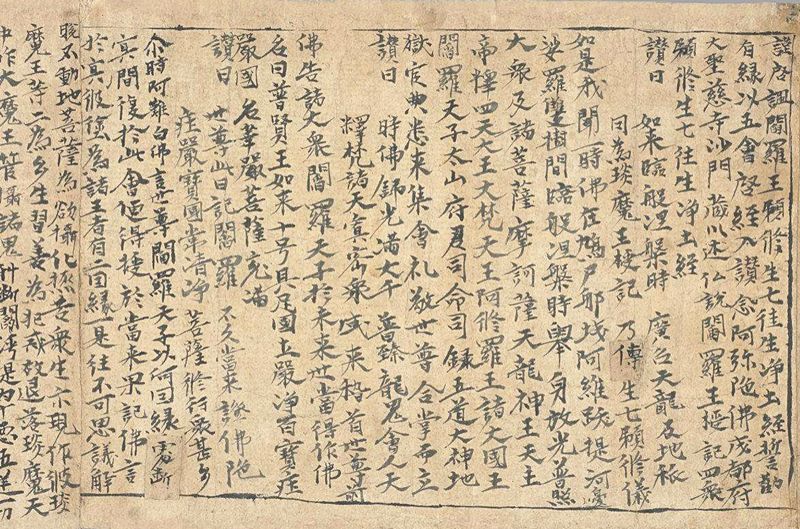 謹啓諷閻羅王預修生七往生淨土經誓勸
有緣以五會啓經入讚念阿弥陁佛成都府
大聖慈寺沙門藏川述仏説閻羅王授記四衆
預修生七往生淨土經
讃曰 如来臨般涅槃時 廣召天龍及地祇
因為琰魔王授記 乃傳生七預修儀
如是我聞一時佛在鳩尸那城阿維跋提河邊
娑羅雙樹間臨般涅槃時舉身放光普照
大衆及諸菩薩摩訶薩天龍神王天主
帝釋四天大王大梵天王阿修羅王諸大國王
閻羅天子太山府君司命司録五道大神地
獄官典悉来集會礼敬世尊合掌而立
讃曰 時佛舒光満大千 普臻龍鬼會人天
釋梵諸天冥密衆 咸来稽首世尊前
佛告諸大衆閻羅天子於未来世當得作佛
名曰普賢王如来十号具足國土嚴淨百寶莊
嚴國名華嚴菩薩充滿
讃曰 世尊此日記閻羅 不久當来證佛陁
莊嚴寶國常清淨 菩薩修行衆甚多
尒時阿難白佛言世尊閻羅天子以何因縁處断
冥間復於此會便得授於當来果記佛言
於冥彼途為諸王者有二因縁一是住不可思議解
脱不動地菩薩為欲攝化極苦衆生示現作彼琰
魔王等二為多生習善為犯戒故退落琰魔天
中作大魔王管攝諸鬼科断閻浮提内十惡五逆一切